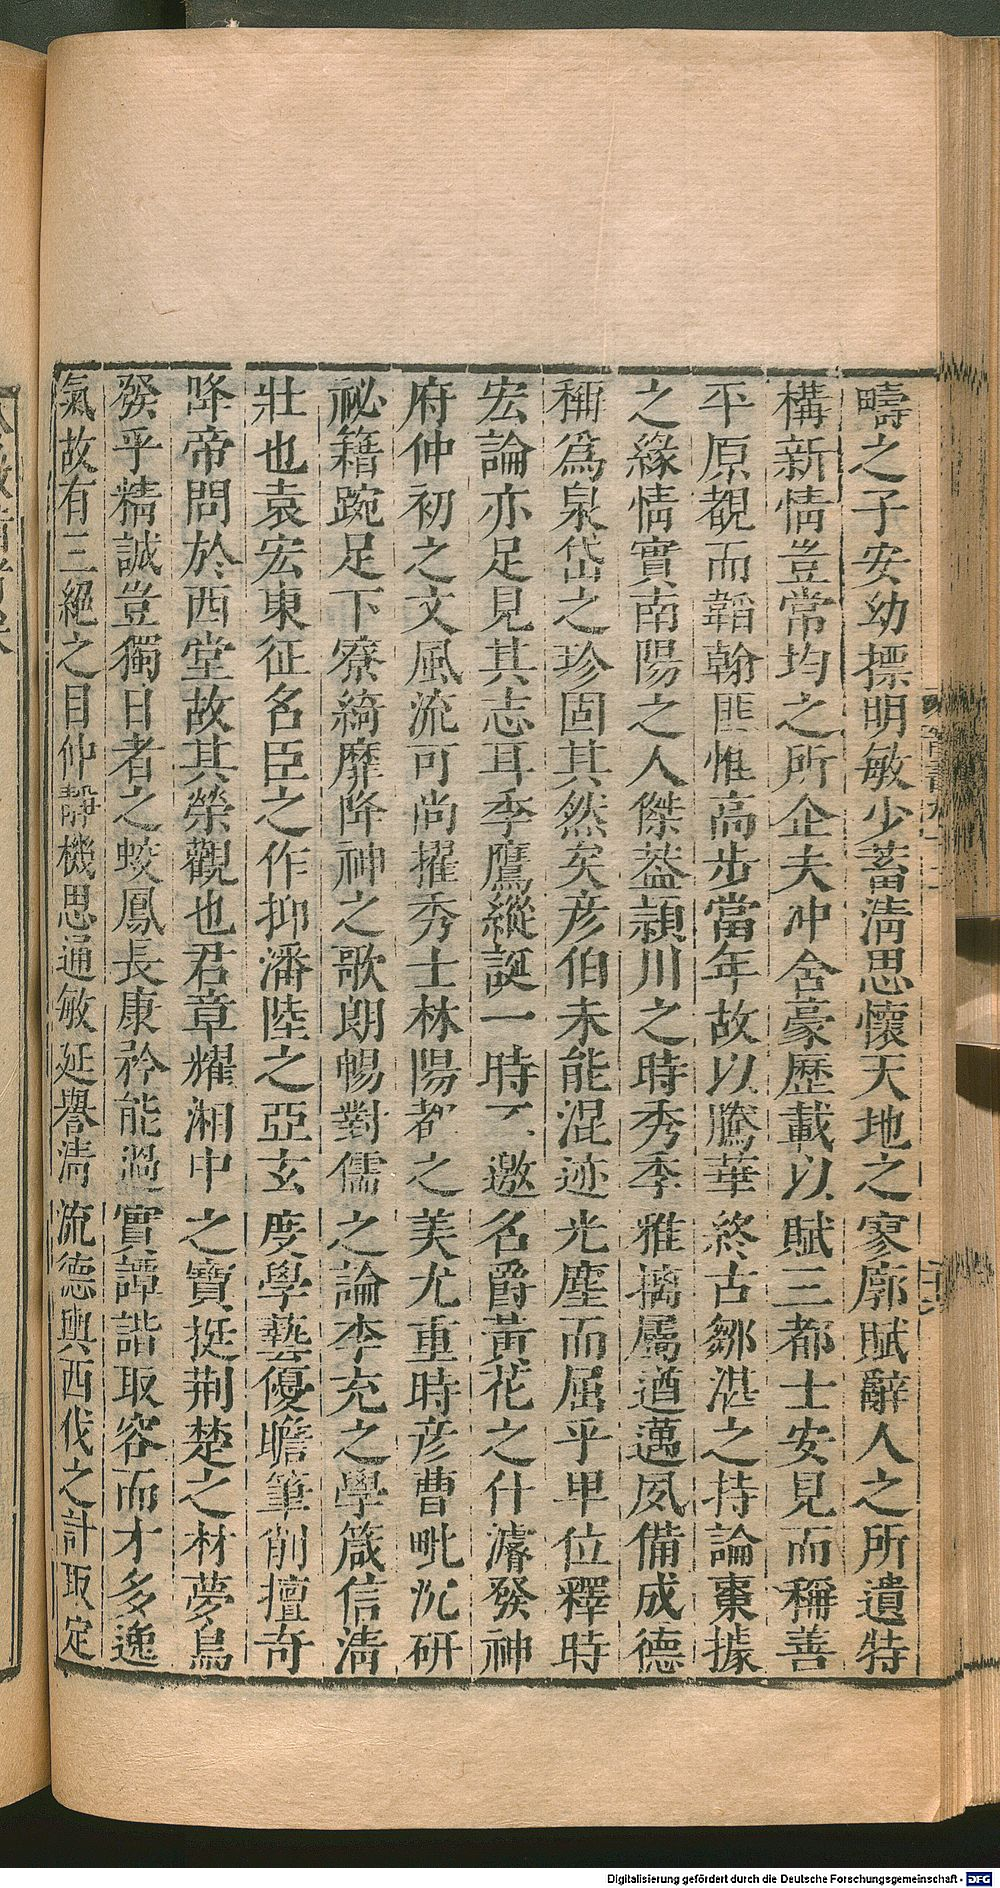 疇之子安幼摽明敏少蓄淸思懷天地之寥廓賦辭人之所遺特
構新情豈常均之所企夫冲含豪歷載以賦三都士安見而稱善
平原覩而韜翰匪惟高步當年故以騰華終古鄒湛之持論棗據
之緣情實南陽之人傑葢潁川之時秀季雅摛屬遒邁夙備成德
稱爲泉岱之珍固其然矣彦伯未能混迹光塵而屈乎卑位釋時
宏論亦足見其志耳季鷹縱誕一時不邀名爵黃花之什濬發神
府仲初之文風流可尚擢秀士林陽都之美尤重時彦曹毗沉研
祕籍踠足下寮綺靡降神之歌朗暢對儒之論李充之學箴信淸
壯也袁宏東征名臣之作抑潘陸之亞玄度學藝優瞻筆削擅奇
降帝問於西堂故其榮觀也君章耀湘中之寶挺荆楚之材夢鳥
發乎精誠豈獨日者之蛟鳳長康矜能過實譚諧取容而才多逸
氣故有三絕之目仲靜機思通敏延譽淸流德輿西伐之計取定
Digitalisierung gefördert durch die Deutsche Forschungsgemeinschaft - DFG